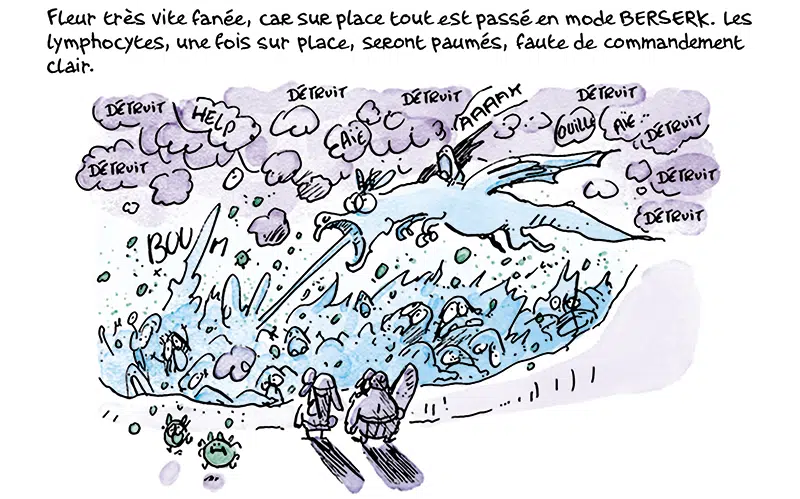 Fleur très vite fanée, car sur place tout est passé en mode BERSERK. Les
lymphocytes, une fois sur place, seront paumés, faute de commandement
clair.
DÉTRUIT
HELP
DÉTRUIT
AÏE
DÉTRUIT
AAAAX
DÉTRUIT
OUILLE
AÏE
DÉTRUIT
DÉTRUIT
DÉTRUIT
DÉTRUIT
BOUM